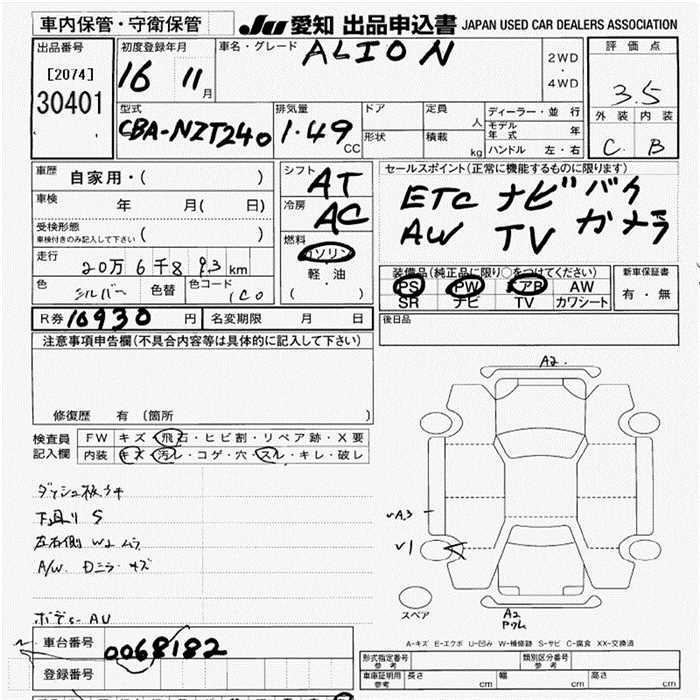 車内保管・守衛保管
JU 愛知 出品申込書 JAPAN USED CAR DEALERS ASSOCIATION
出品番号
[2074]
30401
初度登録年月
16 11月
車名・グレード
ALION
2WD
・
4WD
評価点
3.5
外装 内装
C B
型式
CBA-NZT240
排気量
1.49
CC
ドア
形状
定員 人
積載 kg
ディーラー・並行
モデル年式 年
ハンドル 左・右
車歴 自家用・( )
車検 年 月( 日)
受検形態
車検付きのみ記入して下さい ( )
走行 20万6千893km
色 シルバー 色替 色コード 1C0
シフト AT
冷房 AC
燃料
ガソリン
軽・油
( )
セールスポイント(正常に機能するものに限ります)
ETC ナビ バック
AW TV カメラ
装備品(純正品に限り○をつけてください)
PS PW エアB AW
SR ナビ TV カワシート
新車保証書
有・無
R券 10930円 名変期限 月 日
後日品
注意事項申告欄(不具合内容等は具体的に記入して下さい)
修復歴 有(箇所 )
検査員
記入欄
FW キズ・飛石・ヒビ割・リペア跡・X要
内装 キズ・汚レ・コゲ・穴・スレ・キレ・破レ
下廻り S
左右側 W2 ムラ
ボデー AU
A2
A3
√1
A2
スペア
A-キズ E-エクボ U-凹み W-補修跡 S-サビ C-腐食 XX-交換済
車台番号 0068182
登録番号
形式指定番号
参考
類別区分番号
参考
車庫証明用
参考
長さ cm 幅 cm 高さ cm